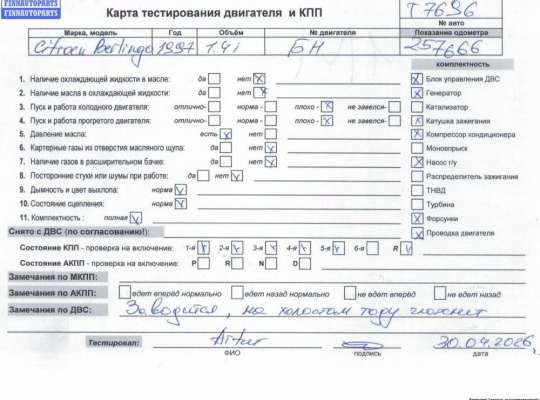 FINNAUTOPARTS
FINNAUTOPARTS
Карта тестирования двигателя и КПП
Т 7696
№ авто
Марка, модель Год Объём № двигателя Показание одометре
Citroen Berlingo 1997 1.4i БН 257666
комплектность
1. Наличие охлаждающей жидкости в масле: да нет
Блок управления ДВС
2. Наличие масла в охлаждающей жидкости: да нет
Генератор
3. Пуск и работа холодного двигателя: отлично- норма - плохо - не завелся-
Катализатор
4. Пуск и работа прогретого двигателя: отлично- норма - плохо - не завелся-
Катушка зажигания
5. Давление масла: есть нет
Компрессор кондиционера
6. Картерные газы из отверстия масляного щупа: да нет
Моновпрыск
7. Наличие газов в расширительном бачке: да нет
Насос г/у
8. Посторонние стуки или шумы при работе: да нет
Распределитель зажигания
9. Дымность и цвет выхлопа: норма
ТНВД
10. Состояние сцепления: норма
Турбина
11. Комплектность : полная
Форсунки
Снято с ДВС (по согласованию!):
Проводка двигателя
Состояние КПП - проверка на включение: 1-я 2-я 3-я 4-я 5-я 6-я R
Состояние АКПП - проверка на включение: P R N D
Замечания по МКПП:
Замечания по АКПП: едет вперёд нормально едет назад нормально не едет вперёд не едет назад
Замечания по ДВС: Заводится, на холостом ходу глохнет
Тестировал: Artur 30.04.2026
ФИО подпись дата